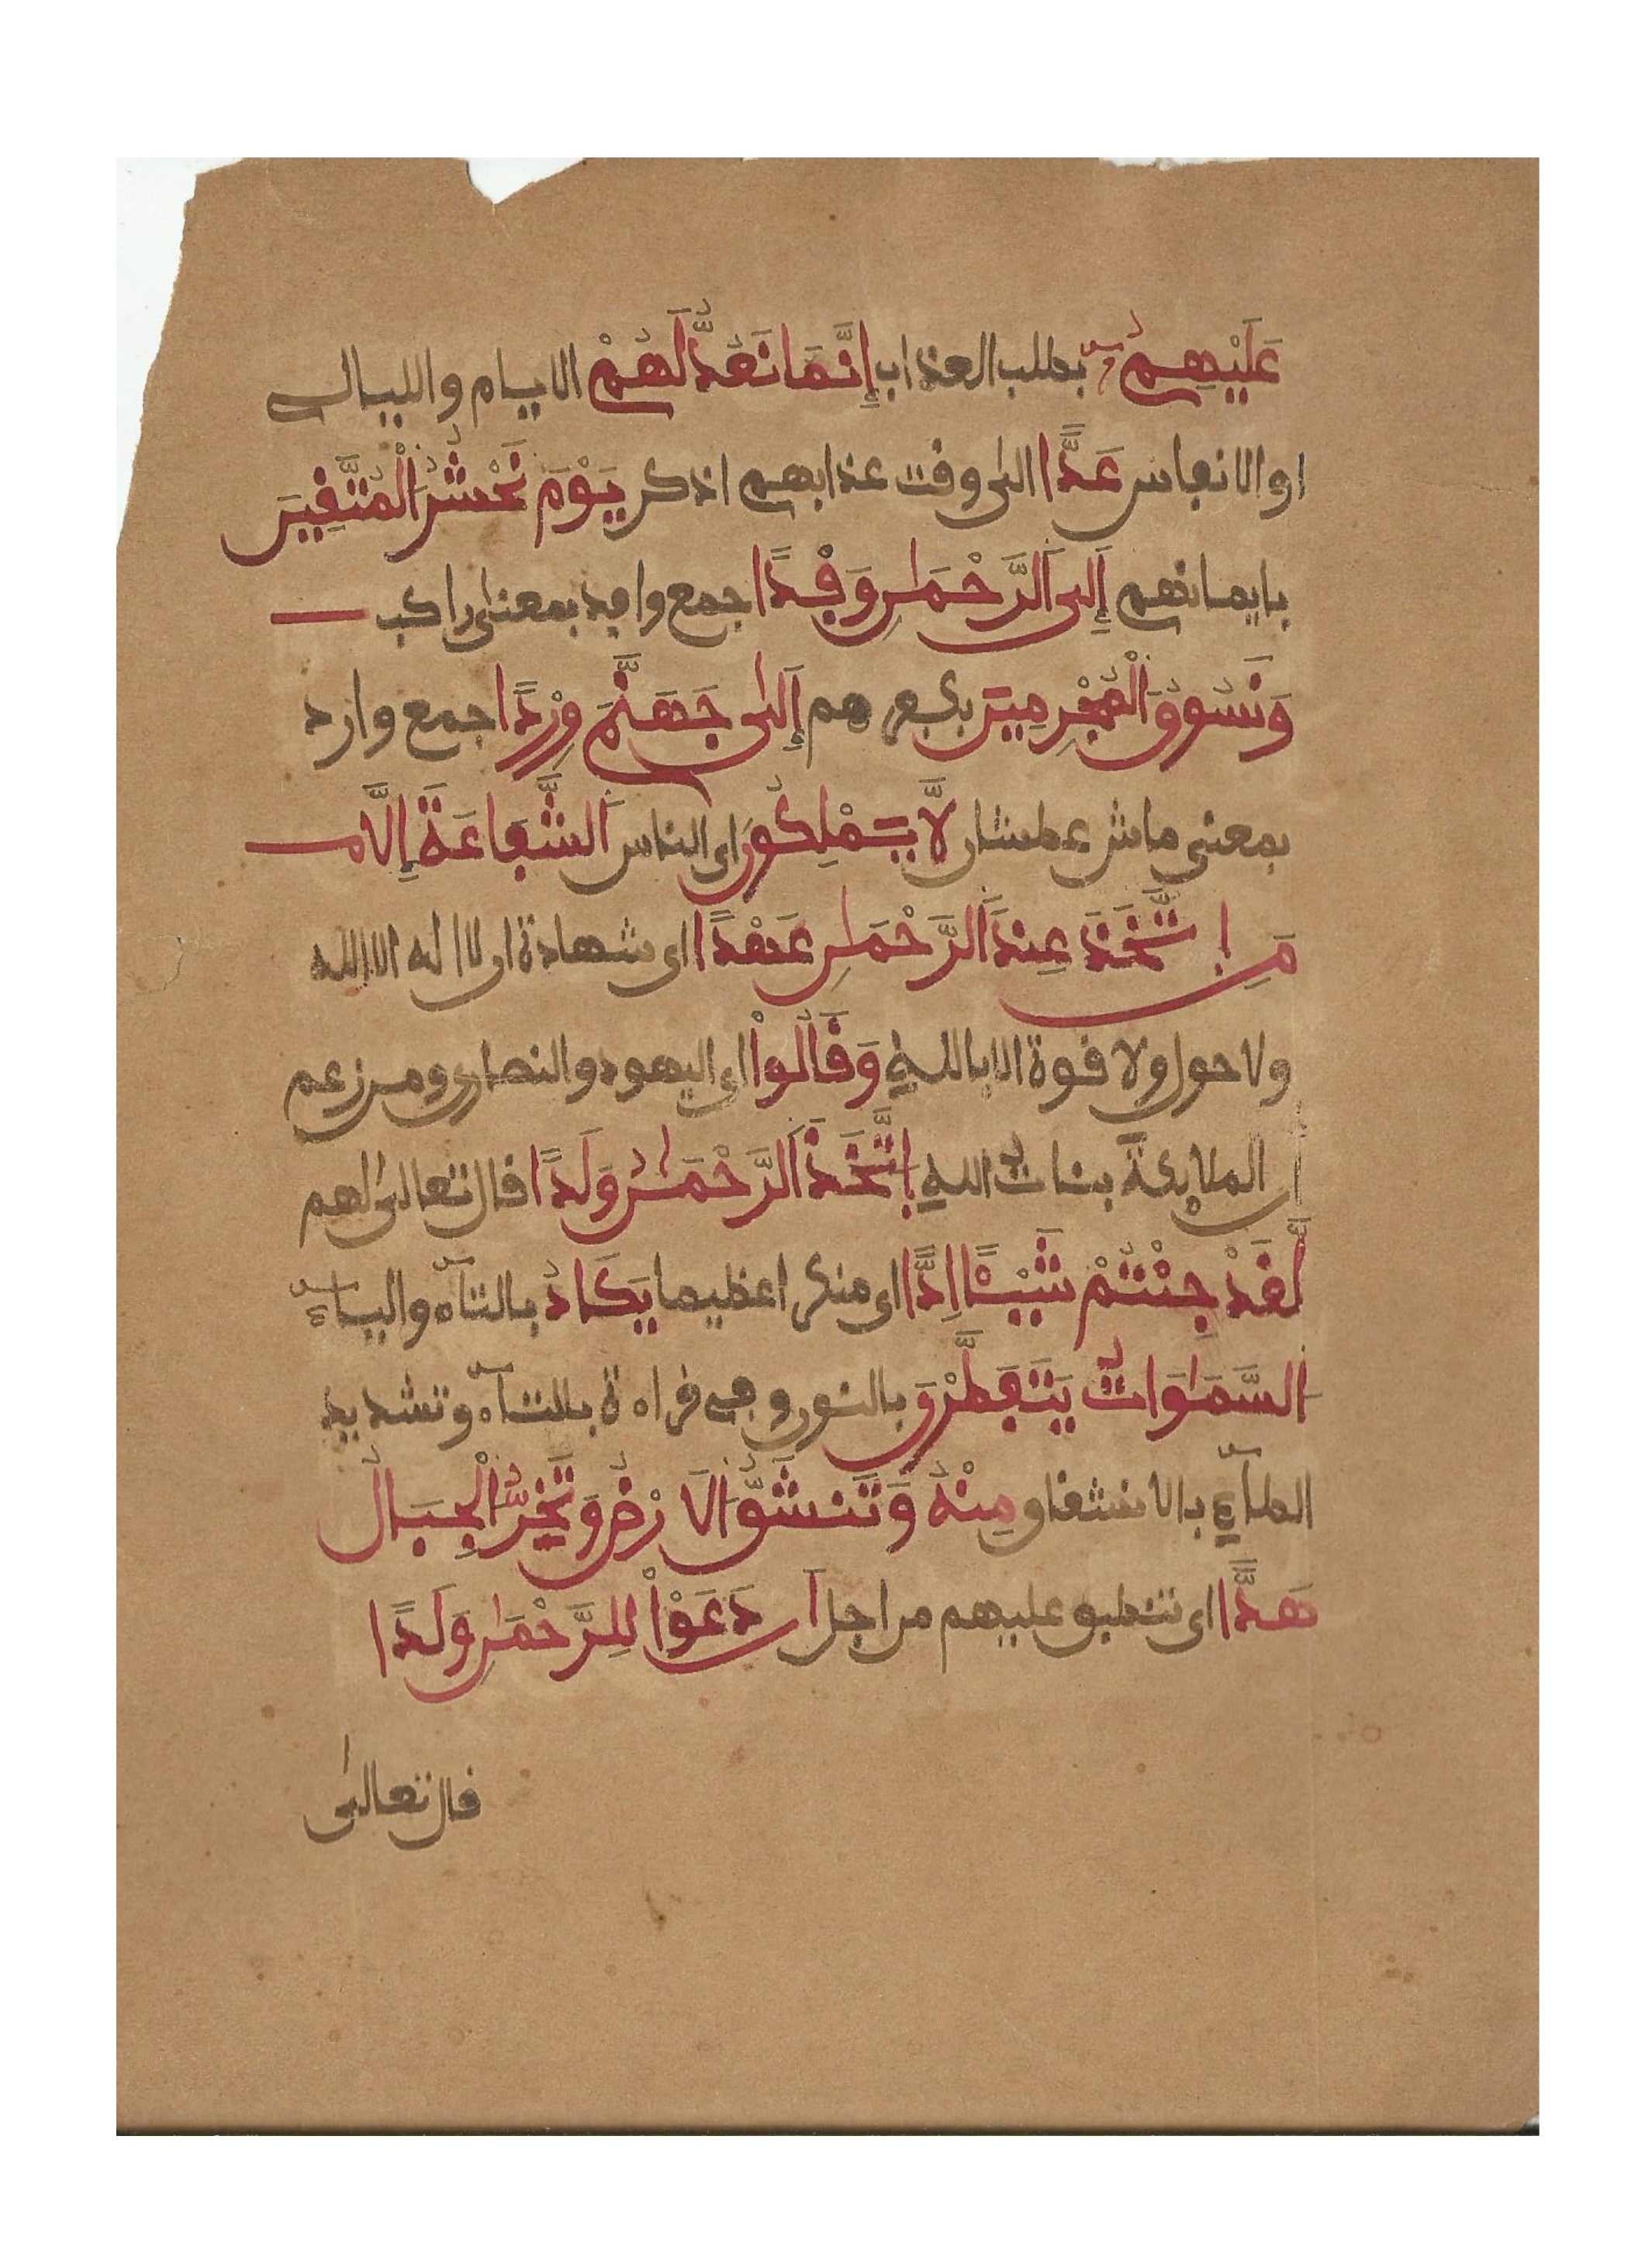 عَلَيْهِمْ بطلب العذاب إِنَّمَا نَعُدُّ لَهُمْ الايام والليالى
او الانفاس عَدًّا الى وقت عذابهم اذكر يَوْمَ نَحْشُرُ الْمُتَّقِينَ
بايمانهم إِلَى الرَّحْمَٰنِ وَفْدًا جمع وافد بمعنى راكب
وَنَسُوقُ الْمُجْرِمِينَ بكفرهم إِلَىٰ جَهَنَّمَ وِرْدًا جمع وارد
بمعنى ماش عطشان لَّا يَمْلِكُونَ اى الناس الشَّفَاعَةَ إِلَّا
مَنِ اتَّخَذَ عِندَ الرَّحْمَٰنِ عَهْدًا اى شهادة ان لا اله الا الله
ولا حول ولا قوة الا بالله وَقَالُواْ اى اليهود والنصارى ومن زعم
ان الملائكة بنات الله اتَّخَذَ الرَّحْمَٰنُ وَلَدًا قال تعالى لهم
لَّقَدْ جِئْتُمْ شَيْئًا إِدًّا اى منكرا عظيما يَكَادُ بالتاء والياء
السَّمَٰوَاتُ يَتَفَطَّرْنَ بالنون وفى قراءة بالتاء وتشديد
الطاء بالانشقاق مِنْهُ وَتَنشَقُّ الَارْضُ وَتَخِرُّ الْجِبَالُ
هَدًّا اى تنطبق عليهم من اجل أَن دَعَوْاْ لِلرَّحْمَٰنِ وَلَدًا
قال تعالى